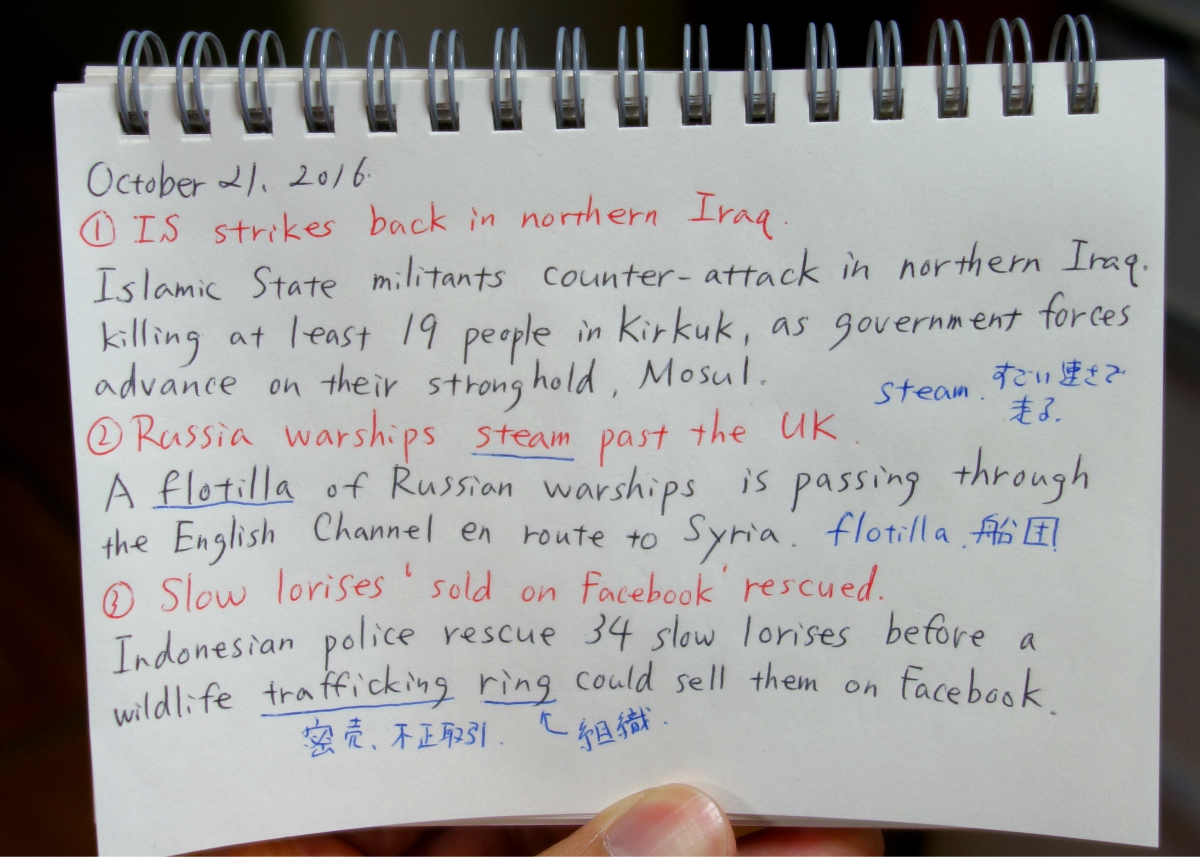 October 21. 2016.
① IS strikes back in northern Iraq.
Islamic State militants counter-attack in northern Iraq.
killing at least 19 people in Kirkuk, as government forces
advance on their stronghold, Mosul.
steam. すごい速さで
走る.
② Russia warships steam past the UK.
A flotilla of Russian warships is passing through
the English Channel en route to Syria. flotilla. 船団
③ Slow lorises 'sold on Facebook' rescued.
Indonesian police rescue 34 slow lorises before a
wildlife trafficking ring could sell them on Facebook.
密売、不正取引. ↖ 組織.